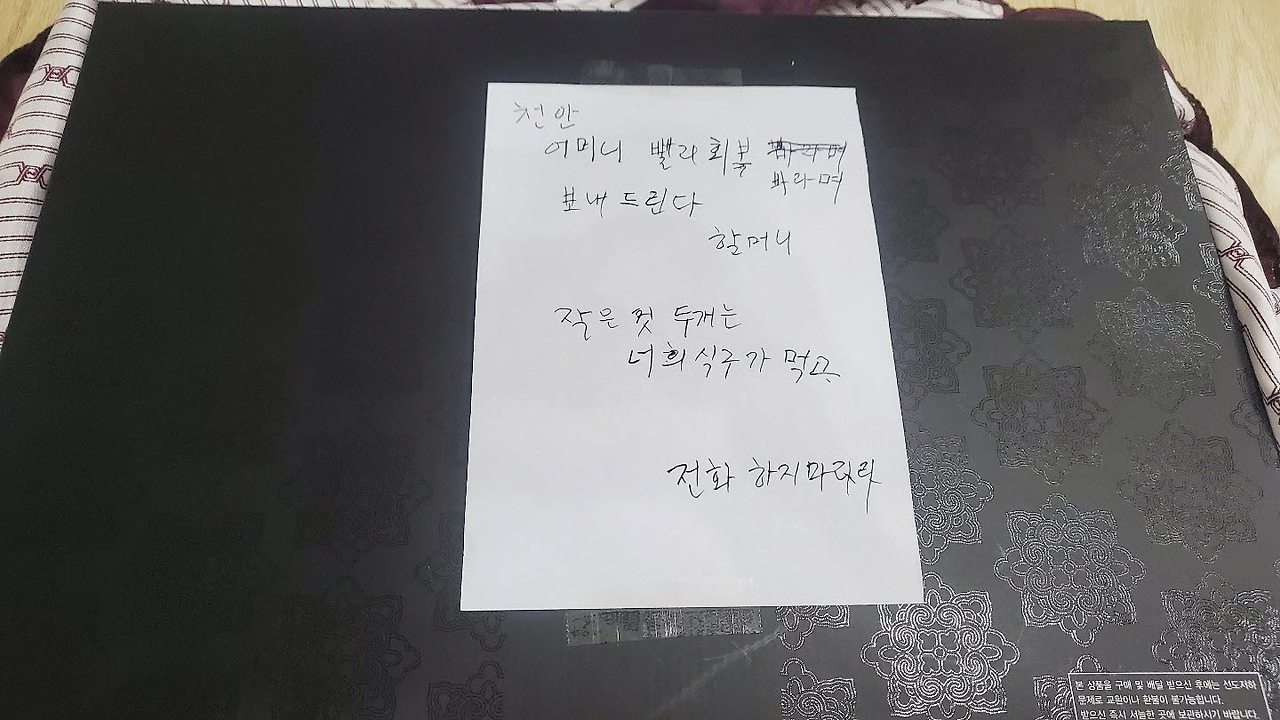 천안
어머니 빨리 회복 바라며
바라며
보내 드린다
할머니
작은 컷 두개는
너희 식구가 먹고
전화 하지마라라
본 상품을 구매 및 배달 받으신 후에는 선도저하
문제로 교환이나 환불이 불가능합니다.
받으신 즉시 서늘한 곳에 보관하시기 바랍니다.